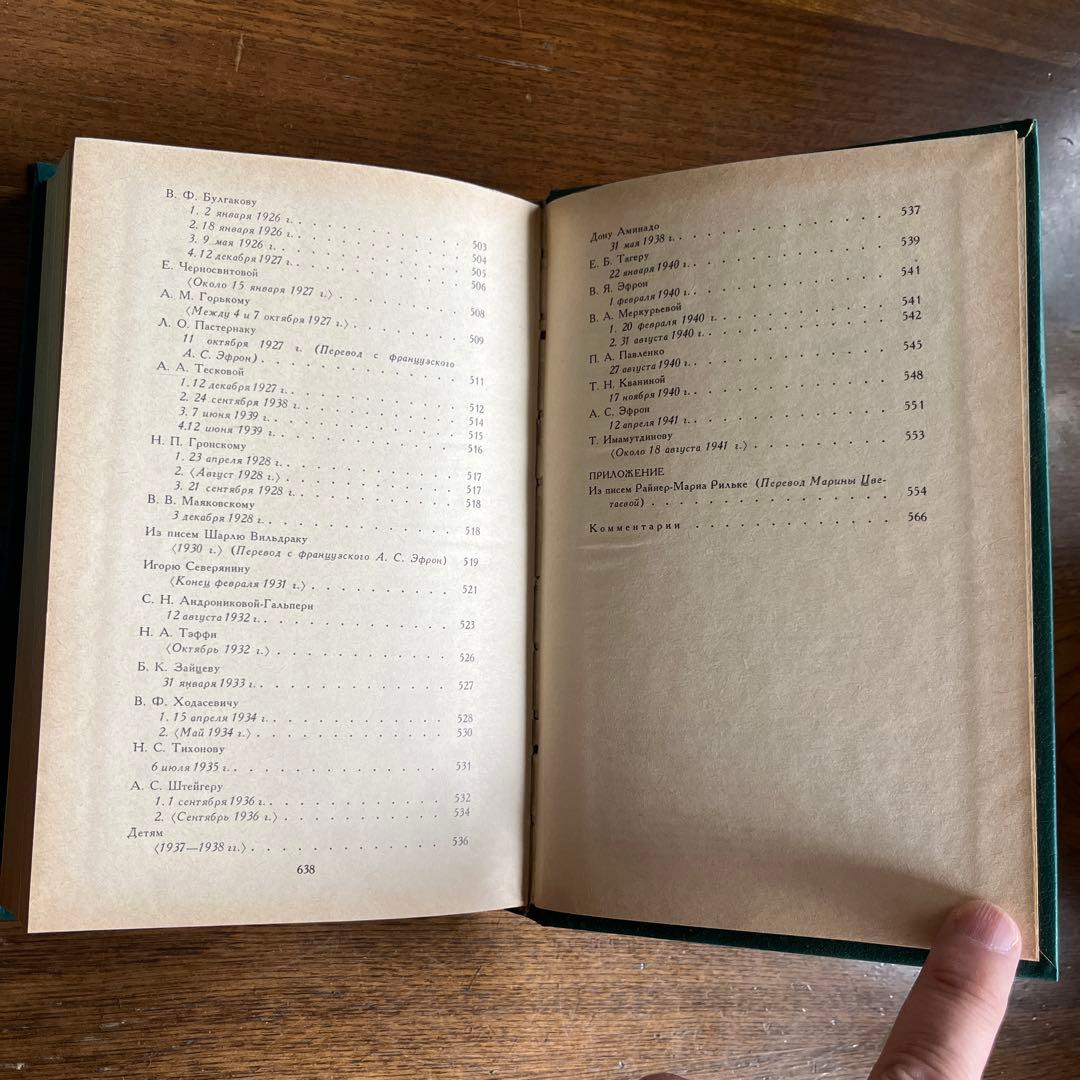 В. Ф. Булгакову
1. 2 января 1926 г. . . . . . . . . . . . 503
2. 18 января 1926 г. . . . . . . . . . . . 504
3. 9 мая 1926 г. . . . . . . . . . . . 505
4. 12 декабря 1927 г. . . . . . . . . . . . 506
Е. Черносвитовой
⟨Около 15 января 1927 г.⟩ . . . . . . . . . 508
А. М. Горькому
⟨Между 4 и 7 октября 1927 г.⟩ . . . . . . . . 509
Л. О. Пастернаку
11 октября 1927 г. (Перевод с французского
А. С. Эфрон) . . . . . . . . . . . . 511
А. А. Тесковой
1. 12 декабря 1927 г. . . . . . . . . . . . 512
2. 24 сентября 1938 г. . . . . . . . . . . . 514
3. 7 июня 1939 г. . . . . . . . . . . . 515
4. 12 июня 1939 г. . . . . . . . . . . . 516
Н. П. Гронскому
1. 23 апреля 1928 г. . . . . . . . . . . . 517
2. ⟨Август 1928 г.⟩ . . . . . . . . . . . 517
3. 21 сентября 1928 г. . . . . . . . . . . . 518
В. В. Маяковскому
3 декабря 1928 г. . . . . . . . . . . . 518
Из писем Шарлю Вильдраку
⟨1930 г.⟩ (Перевод с французского А. С. Эфрон) 519
Игорю Северянину
⟨Конец февраля 1931 г.⟩ . . . . . . . . . 521
С. Н. Андрониковой-Гальперн
12 августа 1932 г. . . . . . . . . . . . 523
Н. А. Тэффи
⟨Октябрь 1932 г.⟩ . . . . . . . . . . . 526
Б. К. Зайцеву
31 января 1933 г. . . . . . . . . . . . 527
В. Ф. Ходасевичу
1. 15 апреля 1934 г. . . . . . . . . . . . 528
2. ⟨Май 1934 г.⟩ . . . . . . . . . . . 530
Н. С. Тихонову
6 июля 1935 г. . . . . . . . . . . . 531
А. С. Штейгеру
1. 1 сентября 1936 г. . . . . . . . . . . . 532
2. ⟨Сентябрь 1936 г.⟩ . . . . . . . . . . 534
Детям
⟨1937—1938 гг.⟩ . . . . . . . . . . . 536
638
Дону Аминадо
31 мая 1938 г. . . . . . . . . . . . 537
Е. Б. Тагеру
22 января 1940 г. . . . . . . . . . . . 539
В. Я. Эфрон
1 февраля 1940 г. . . . . . . . . . . . 541
В. А. Меркурьевой
1. 20 февраля 1940 г. . . . . . . . . . . 541
2. 31 августа 1940 г. . . . . . . . . . . . 542
П. А. Павленко
27 августа 1940 г. . . . . . . . . . . . 545
Т. Н. Кваниной
17 ноября 1940 г. . . . . . . . . . . . 548
А. С. Эфрон
12 апреля 1941 г. . . . . . . . . . . . 551
Т. Имамутдинову
⟨Около 18 августа 1941 г.⟩ . . . . . . . . . 553
ПРИЛОЖЕНИЕ
Из писем Райнер-Мариа Рильке (Перевод Марины Цве-
таевой) . . . . . . . . . . . . 554
Комментарии . . . . . . . . . . . 566